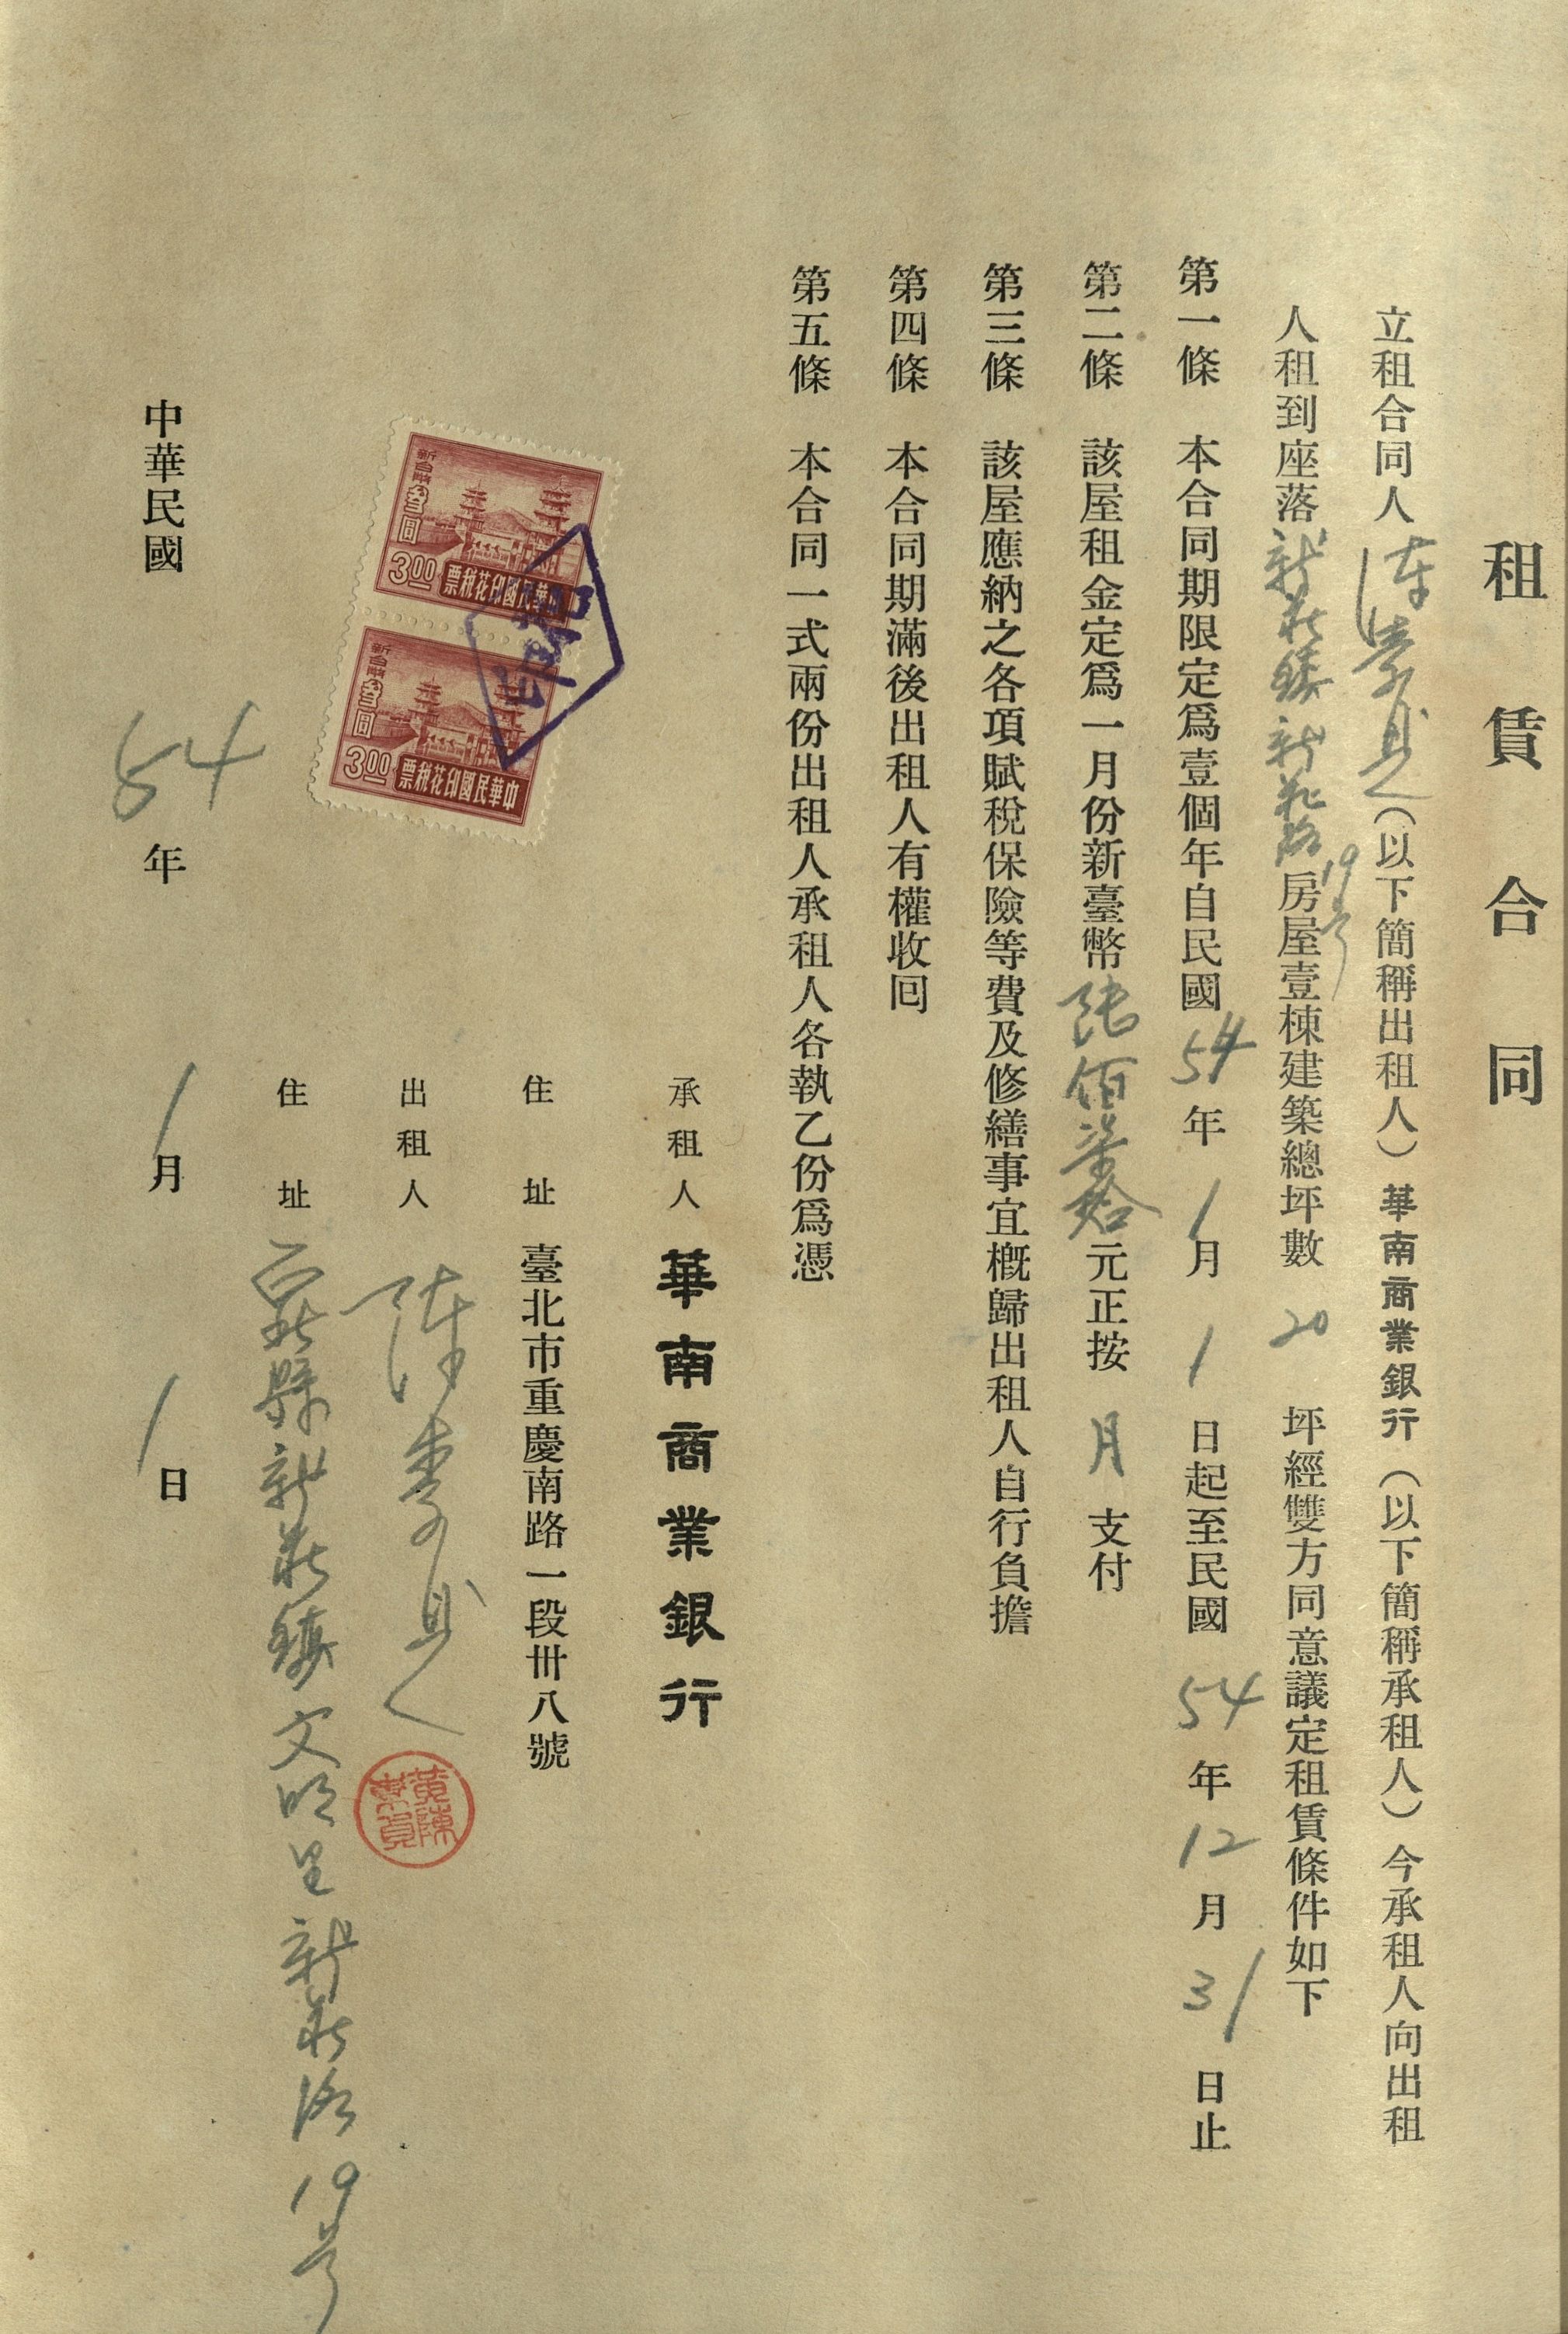 租賃合同
立租合同人陳素貞（以下簡稱出租人）華南商業銀行（以下簡稱承租人）今承租人向出租
人租到座落新莊鎮新莊路19号房屋壹棟建築總坪數20坪經雙方同意議定租賃條件如下
第一條 本合同期限定爲壹個年自民國54年1月1日起至民國54年12月31日止
第二條 該屋租金定爲一月份新臺幣陸佰柒拾元正按月支付
第三條 該屋應納之各項賦稅保險等費及修繕事宜槪歸出租人自行負擔
第四條 本合同期滿後出租人有權收囘
第五條 本合同一式兩份出租人承租人各執乙份爲憑
承租人 華南商業銀行
住址 臺北市重慶南路一段卅八號
出租人 陳素貞
黃陳素貞
住址 縣新莊鎮文明里新莊路19号
新台幣
叁圓
3.00
中華民國印花稅票
新台幣
叁圓
3.00
中華民國印花稅票
中華民國54年1月1日